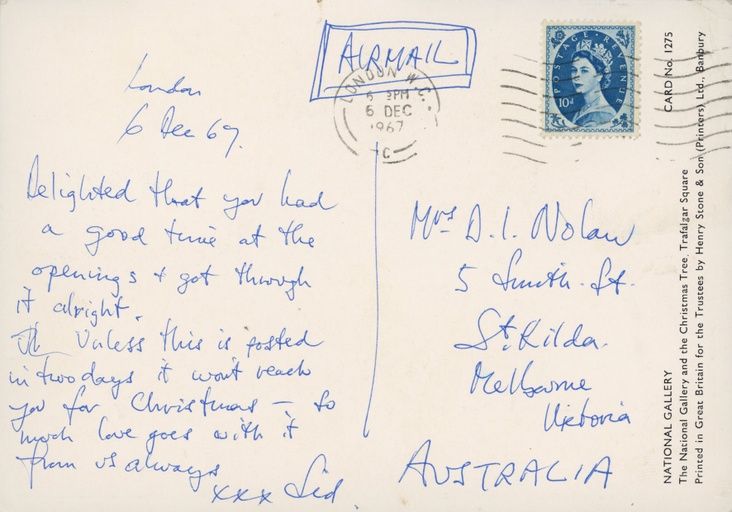 AIRMAIL
LONDON W.C.
6 PM
6 DEC
1967
C
POSTAGE REVENUE
10d
London
6 Dec 67.
Delighted that you had
a good time at the
openings + got through
it alright.
Unless this is posted
in two days it won't reach
you for Christmas – so
much love goes with it
from us always
xxx Sid.
Mrs D. I. Nolan
5 Smith. St.
St. Kilda.
Melbourne
Victoria
AUSTRALIA
NATIONAL GALLERY
The National Gallery and the Christmas Tree, Trafalgar Square
Printed in Great Britain for the Trustees by Henry Stone & Son (Printers) Ltd., Banbury
CARD No. 1275